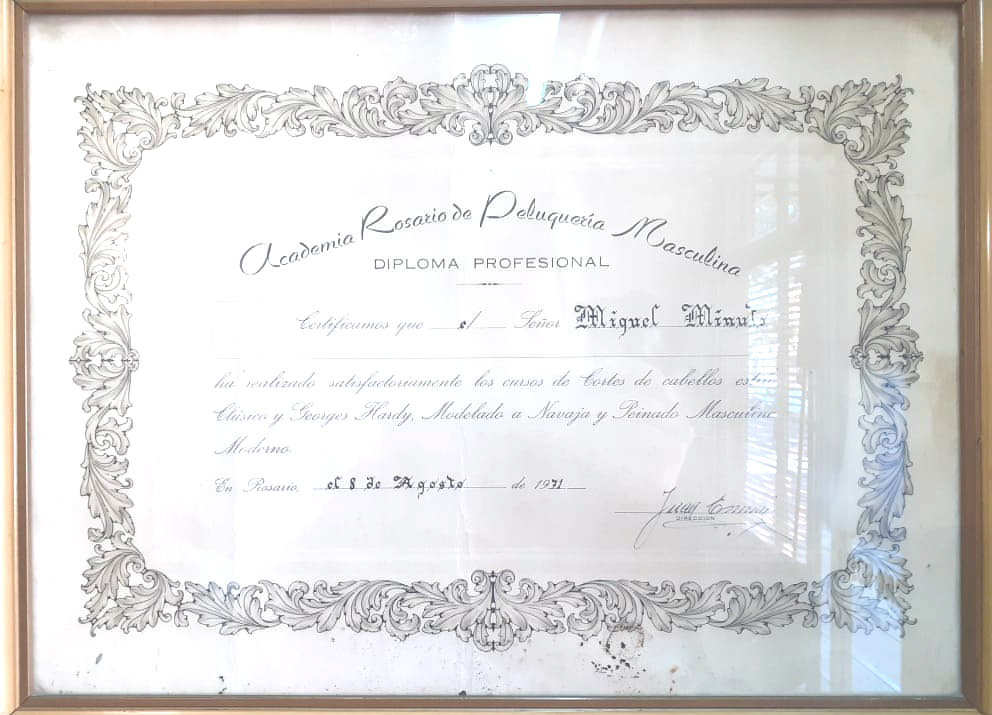 Academia Rosario de Peluquería Masculina
DIPLOMA PROFESIONAL
Certificamos que el Señor Miguel
ha realizado satisfactoriamente los cursos de Cortes de cabellos estilo
Clásico y Georges Hardy, Modelado a Navaja y Peinado Masculino
Moderno.
En Rosario, el 8 de Agosto de 1971
Juan
DIRECCION